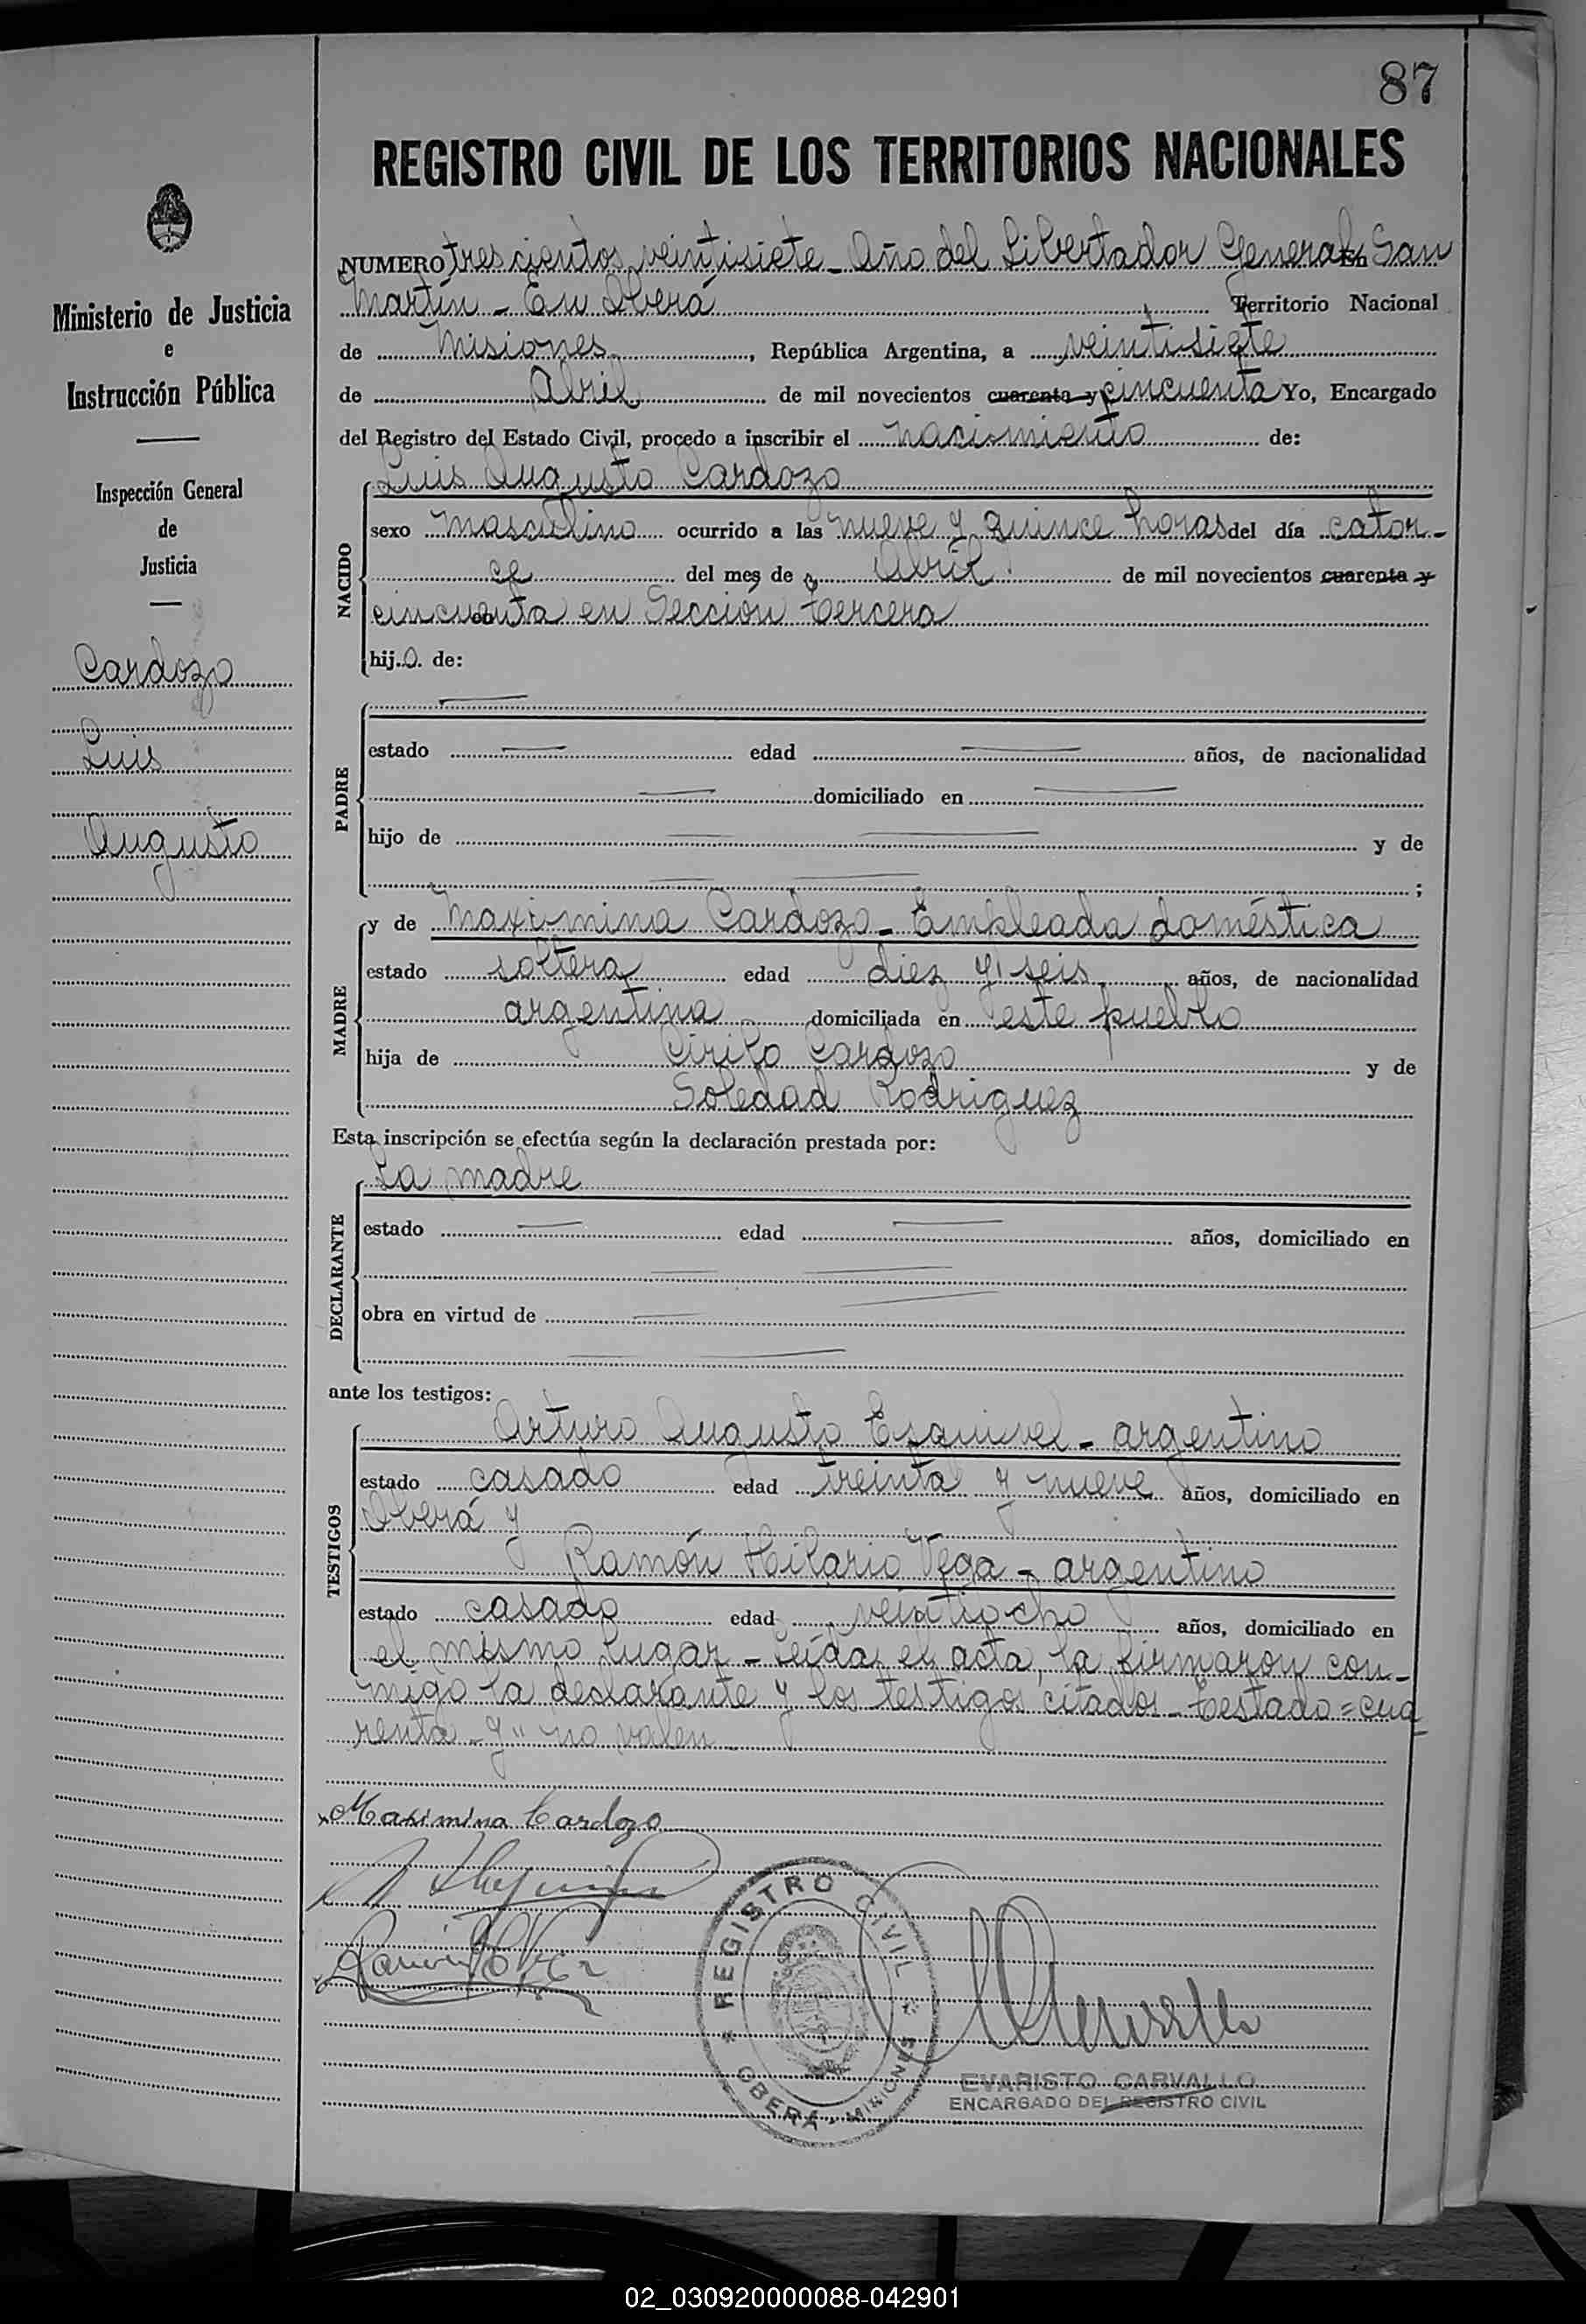 87
REGISTRO CIVIL DE LOS TERRITORIOS NACIONALES
Ministerio de Justicia
e
Instrucción Pública
Inspección General
de
Justicia
Cardozo
Luis
Augusto
NUMERO trescientos veintisiete - Año del Libertador General En San
Martín - En Oberá Territorio Nacional
de Misiones, República Argentina, a veintisiete
de Abril de mil novecientos cuarenta y cincuenta Yo, Encargado
del Registro del Estado Civil, procedo a inscribir el nacimiento de:
NACIDO
Luis Augusto Cardozo
sexo masculino ocurrido a las nueve y quince horas del día cator-
ce del mes de Abril de mil novecientos cuarenta y
cincuenta en Sección tercera
hijo de:
PADRE
estado edad años, de nacionalidad
domiciliado en
hijo de y de
;
MADRE
y de Maximina Cardozo - Empleada doméstica
estado soltera edad diez y seis años, de nacionalidad
argentina domiciliada en este pueblo
hija de Cirilo Cardozo y de
Soledad Rodriguez
Esta inscripción se efectúa según la declaración prestada por:
DECLARANTE
La madre
estado edad años, domiciliado en
obra en virtud de
ante los testigos:
TESTIGOS
Arturo Augusto Esquivel - argentino
estado casado edad treinta y nueve años, domiciliado en
Oberá y
Ramón Hilario Vega - argentino
estado casado edad veintiocho años, domiciliado en
el mismo lugar - Leída el acta, la firmaron con-
migo la declarante y los testigos citados - Testado = cua
renta - y" no valen -
Maximina Cardozo
REGISTRO CIVIL
OBERÁ - MISIONES
EVARISTO CARVALLO
ENCARGADO DEL REGISTRO CIVIL
02_030920000088-042901